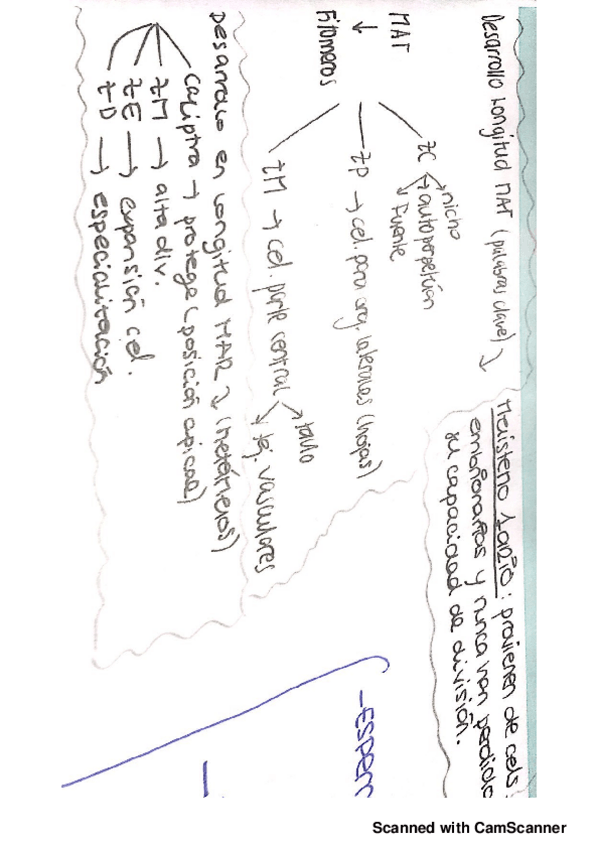 Desarrollo longitud MAT (palabras clave) ↘
MAT
↓
Fitómeros
ZC → nicho
→ autoperpetúan
→ Fuente
ZP → cel. para org. laterales (hojas)
ZM → cel. parte central → tallo
→ tej. vasculares
Meristemo 1ario: provienen de cels.
embrionarias y nunca han perdido
su capacidad de división.
Desarrollo en longitud MAR ↘ (metámeros)
caliptra → protege (posición apical)
ZM → alta div.
ZE → expansión cel.
ZD → especialización
Scanned with CamScanner